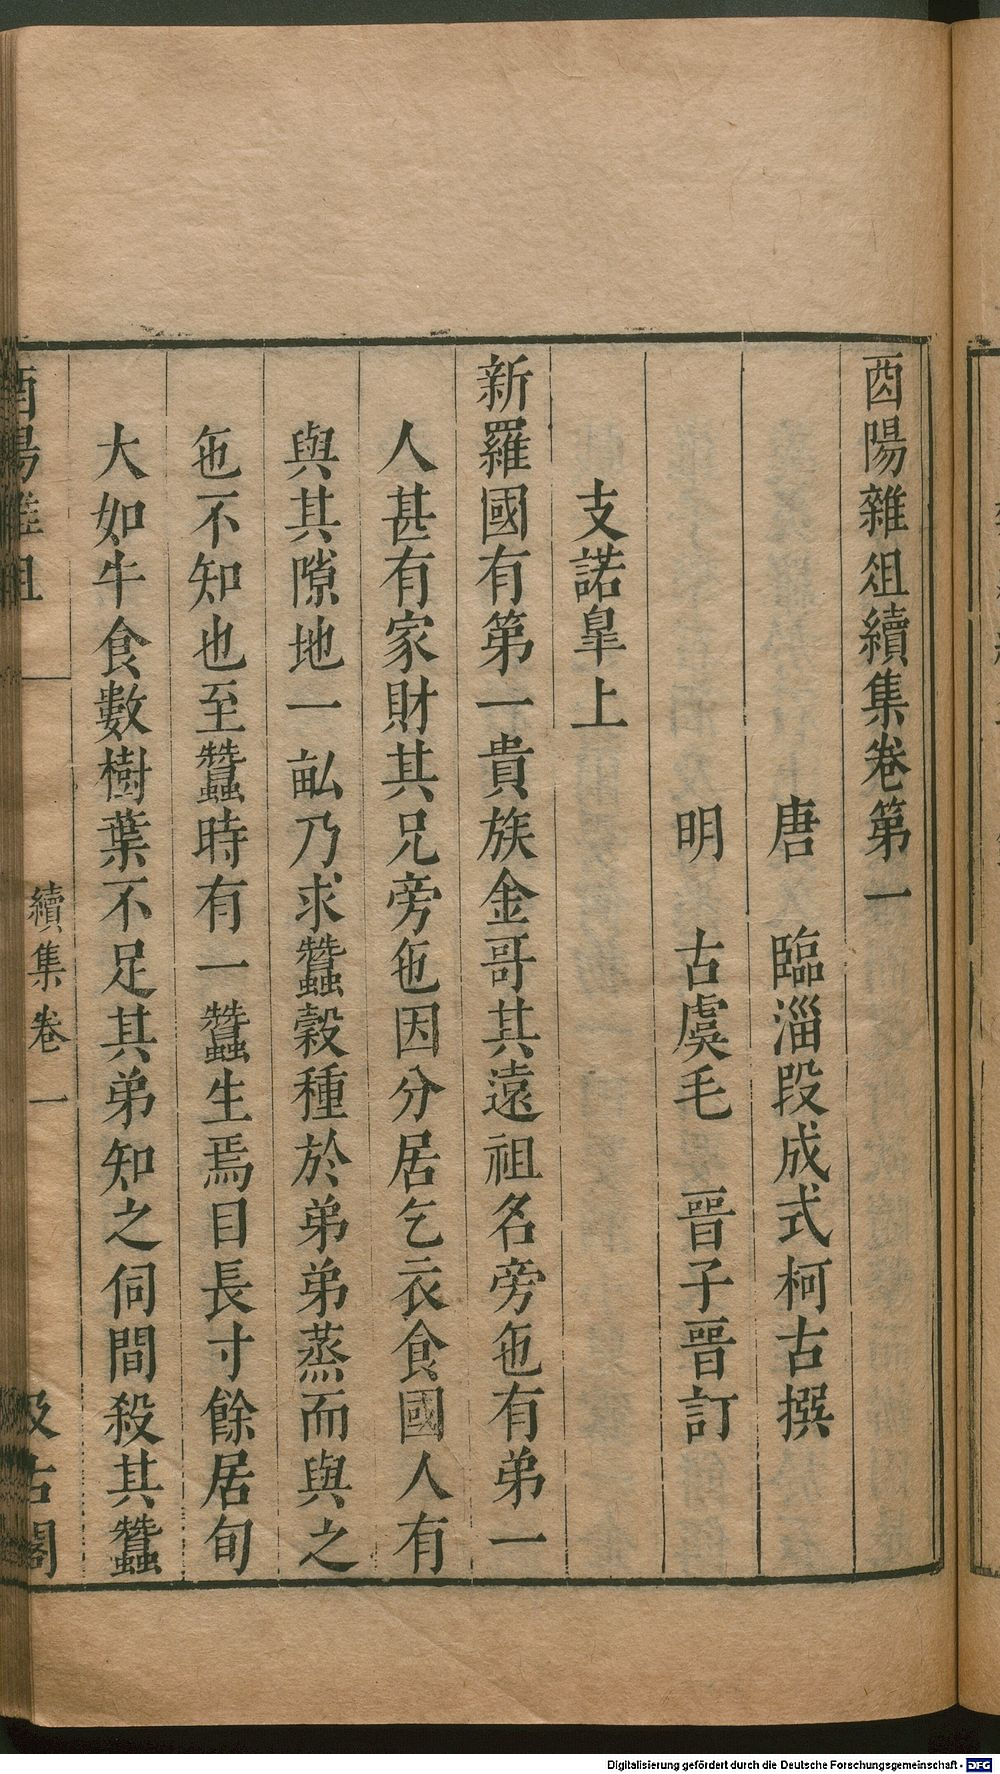 酉陽雜俎續集卷第一
唐 臨淄段成式柯古撰
明 古虞毛 晉子晉訂
支諾臯上
新羅國有第一貴族金哥其遠祖名旁㐌有弟一
人甚有家財其兄旁㐌因分居乞衣食國人有
與其隙地一畝乃求蠶穀種於弟弟蒸而與之
㐌不知也至蠶時有一蠶生焉目長寸餘居旬
大如牛食數樹葉不足其弟知之伺間殺其蠶
酉陽雜俎
續集卷一
汲古閣
Digitalisierung gefördert durch die Deutsche Forschungsgemeinschaft - DFG